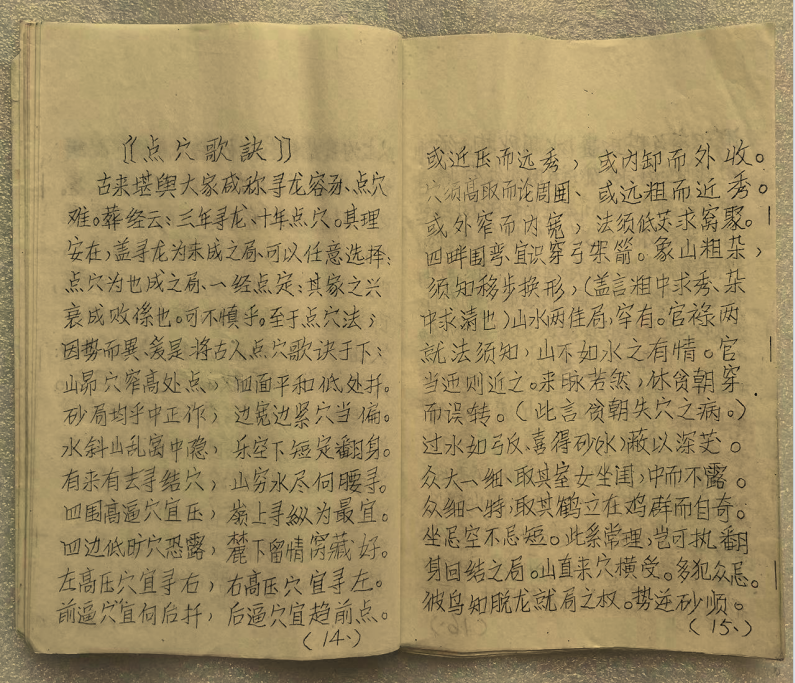 〖点穴歌訣〗
古来堪舆大家咸称寻龙容易、点穴
难。葬经云：三年寻龙、十年点穴。其理
安在，盖寻龙为未成之局、可以任意选择；
点穴为也成之局、一经点定：其家之兴
衰成败係也。可不慎乎。至于点穴法；
因势而異、爰是将古人点穴歌诀于下：
山昂穴窄高处点；四面平和低处扦。
砂局均乎中正作；边宽边紧穴当偏。
水斜山乱窩中隐；乐空下短定翻身。
有来有去寻结穴；山穷水尽何腰寻。
四围高逼穴宜压；嶺上寻縱为最宜。
四边低旷穴恐露；麓下留情窝藏好。
左高压穴宜寻右；右高压穴宜寻左。
前逼穴宜向后扦；后逼穴宜趋前点。
（14、）
或近压而远秀；或内卸而外收。
穴须高取而论周围、或远粗而近秀。
或外窄而内宽；法须低求窩聚。
四畔围弯、宜识穿弓架箭。象山粗杂，
须知移步换形，（盖言粗中求秀、杂
中求清也）山水两佳局，罕有。官禄两
就法须知，山不如水之有情。官
当迊则近之。来脉若然，休贪朝穿
而误转。（此言贪朝失穴之病。）
过水如弓反、喜得砂水）蔽以深茫。
众大一细、取其室女坐闺，中而不露。
众细一特，取其鹤立在鸡群而自奇。
坐忌空不忌短。此系常理，岂可执翻
身回结之局。山直来穴横受。多犯众忌。
彼鸟知脱龙就局之权。势逆砂顺。
（15、）